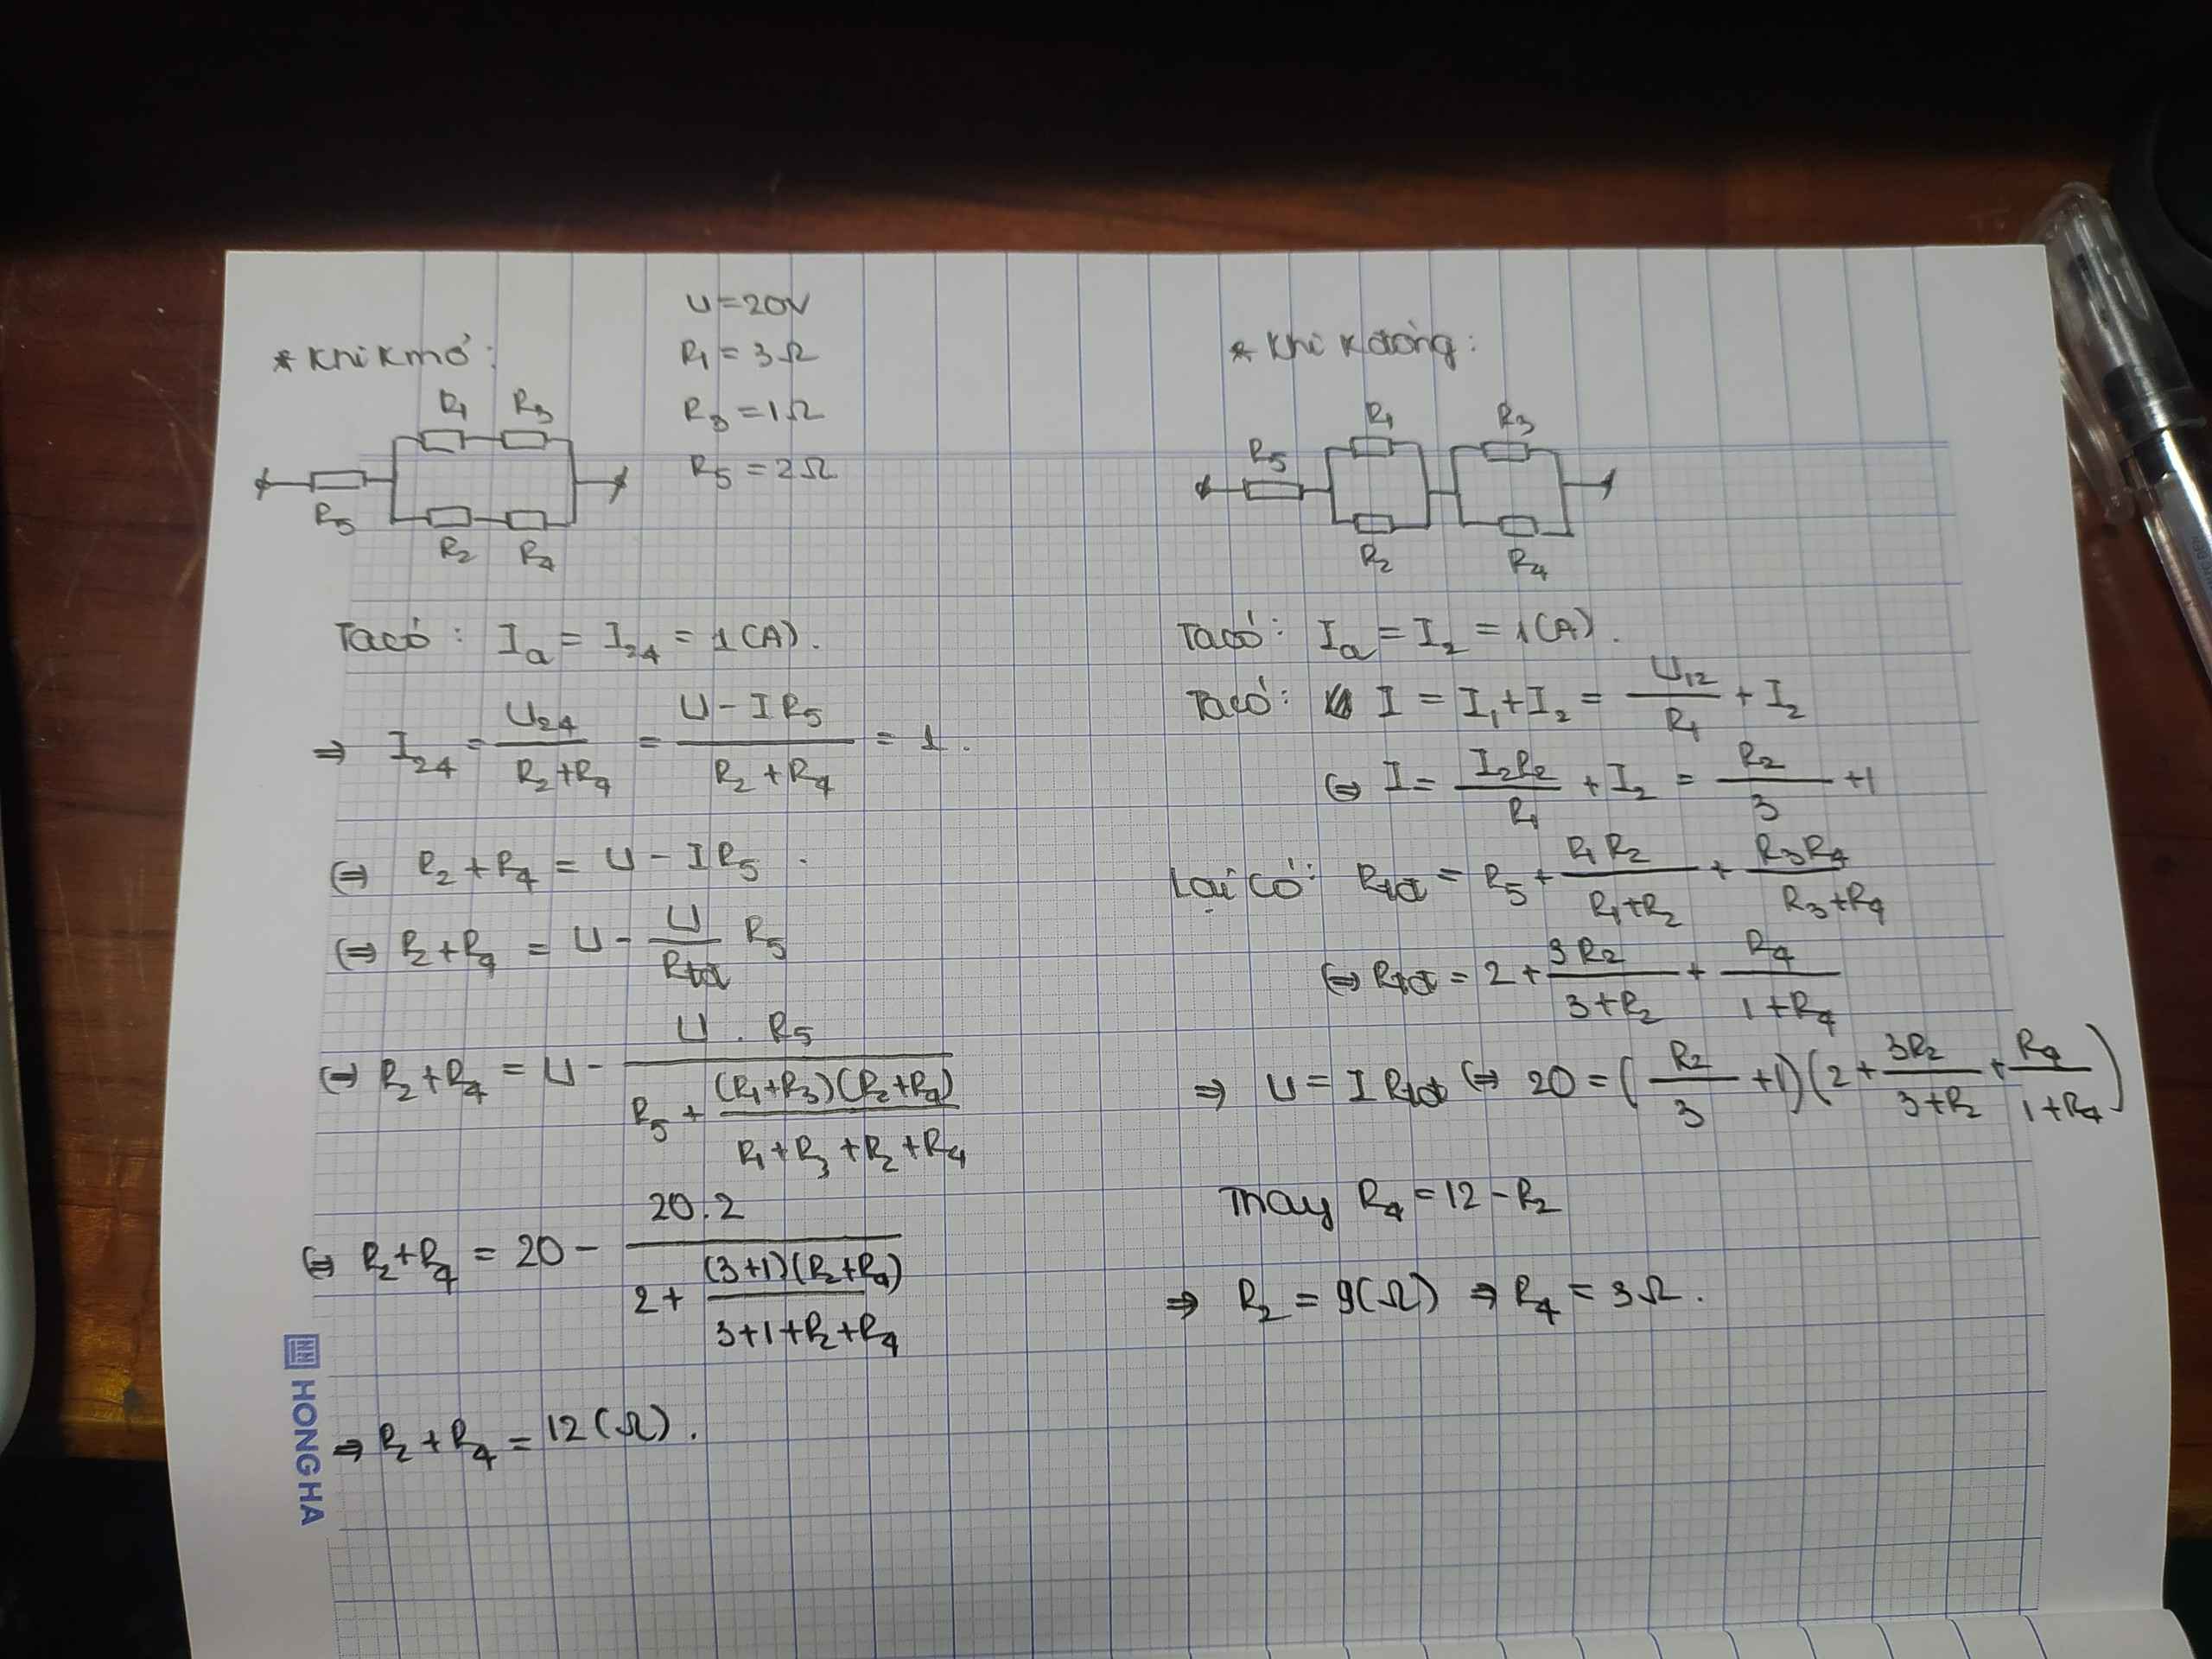 U = 20V
R₁ = 3Ω
R₃ = 1Ω
R₅ = 2Ω
* Khi K mở:
R₁ R₃
R₅
R₂ R₄
Ta có: Iₐ = I₂₄ = 1 (A).
⇒ I₂₄ = U₂₄/(R₂+R₄) = (U - IR₅)/(R₂+R₄) = 1.
⇔ R₂+R₄ = U - IR₅.
⇔ R₂+R₄ = U - (U/Rtđ) R₅
⇔ R₂+R₄ = U - (U . R₅)/(R₅ + (R₁+R₃)(R₂+R₄)/(R₁+R₃+R₂+R₄))
⇔ R₂+R₄ = 20 - (20.2)/(2 + (3+1)(R₂+R₄)/(3+1+R₂+R₄))
⇒ R₂+R₄ = 12 (Ω).
* Khi K đóng:
R₁ R₃
R₅
R₂ R₄
Ta có: Iₐ = I₂ = 1 (A).
Ta có: I = I₁+I₂ = U₁₂/R₁ + I₂
⇔ I = I₂R₂/R₁ + I₂ = R₂/3 + 1
Lại có: Rtđ = R₅ + R₁R₂/(R₁+R₂) + R₃R₄/(R₃+R₄)
⇔ Rtđ = 2 + 3R₂/(3+R₂) + R₄/(1+R₄)
⇒ U = I Rtđ ⇔ 20 = (R₂/3 + 1)(2 + 3R₂/(3+R₂) + R₄/(1+R₄))
Thay R₄ = 12 - R₂
⇒ R₂ = 9(Ω) ⇒ R₄ = 3Ω.
HONG HA